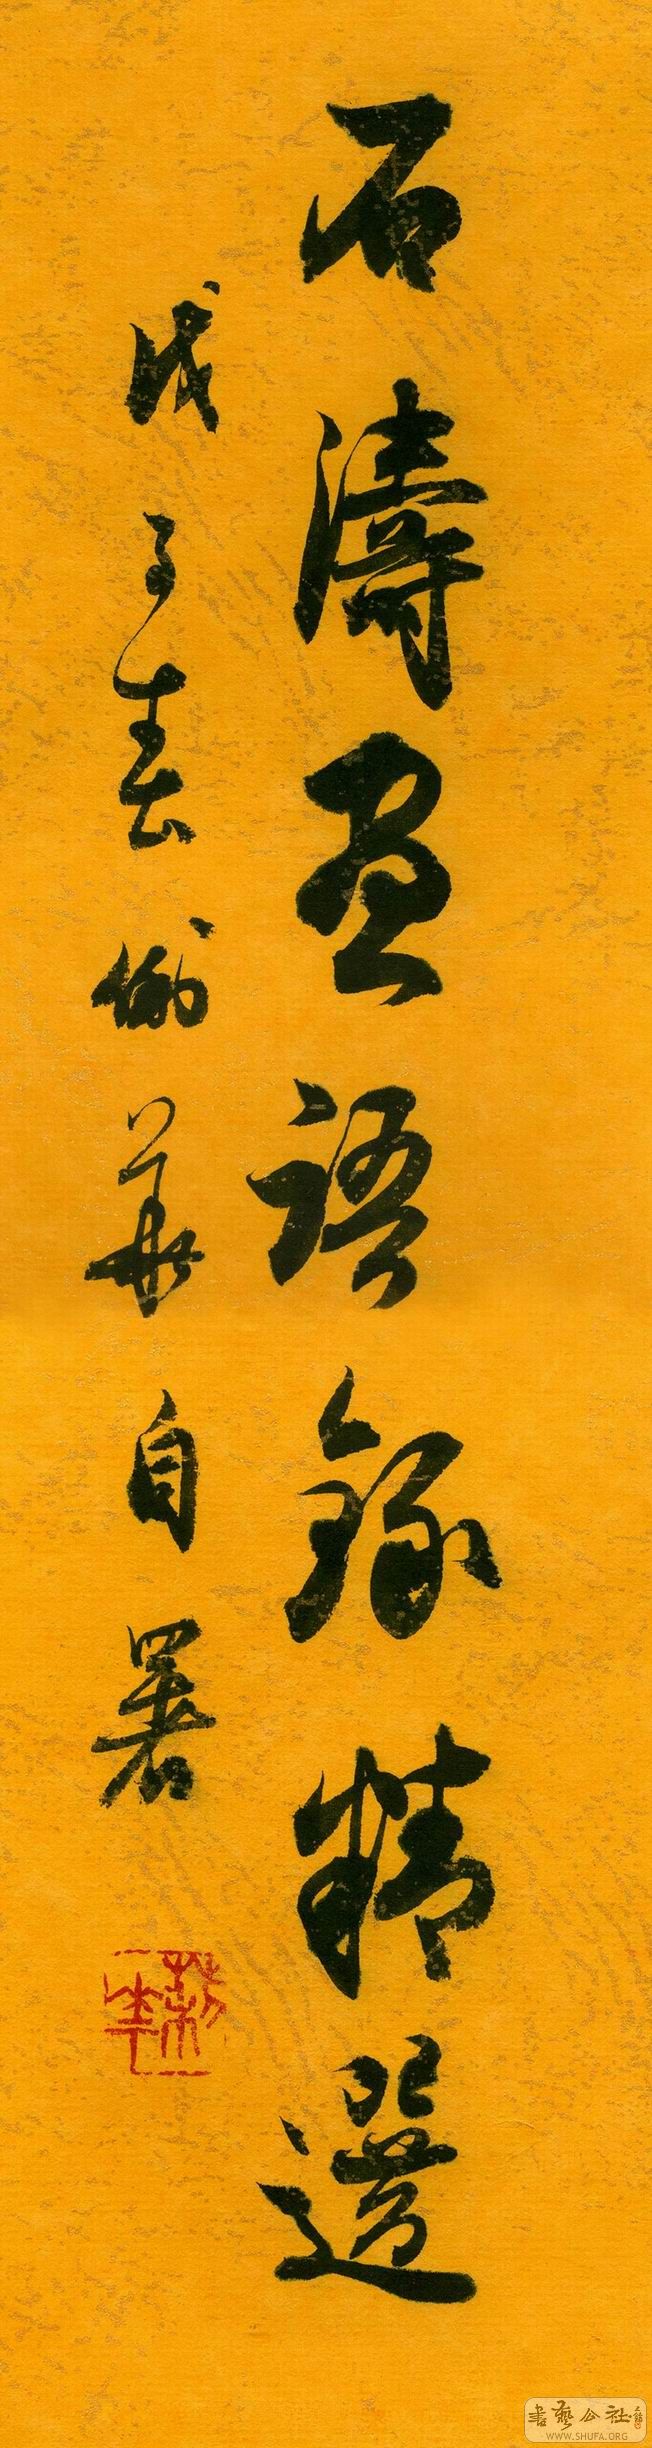 石濤畫語錄精選
戊子春 華自署
書藝公社
WWW.SHUFA.ORG